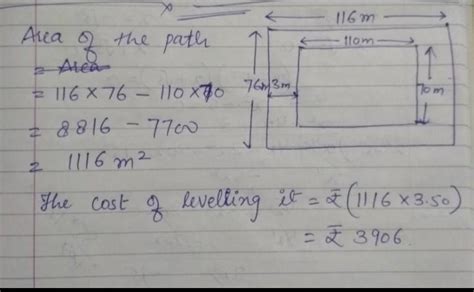 Area of the path
= Area
= 116 × 76 − 110 × 70
= 8816 − 7700
= 1116 m²
116m
110m
76m
3m
70m
The cost of levelling it = ₹ (1116 × 3.50)
= ₹ 3906.